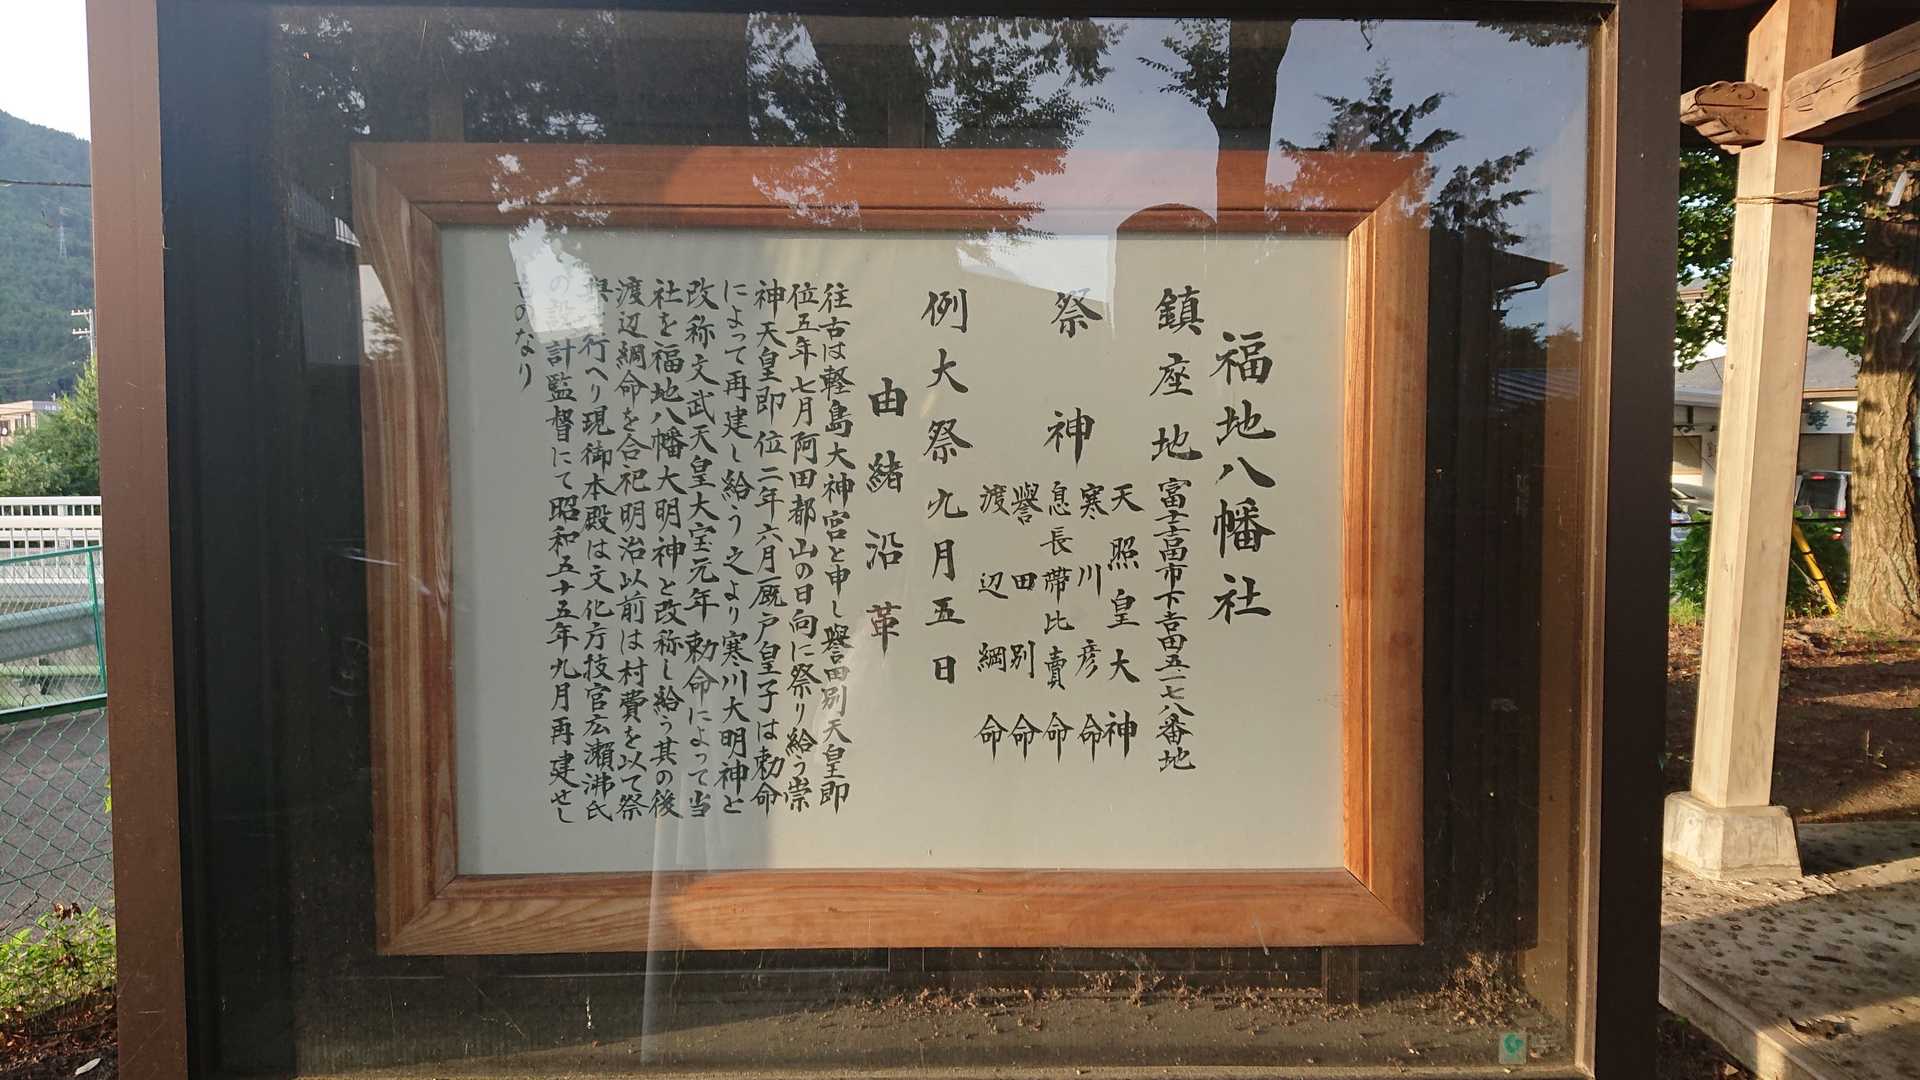 福地八幡社
鎮座地 富士吉田市下吉田五一七八番地
祭神 天照皇大神
寒川彦命
息長帯比賣命
譽田別命
渡辺綱命
例大祭九月五日
由緒沿革
往古は軽島大神宮と申し譽田別天皇即
位五年七月阿田都山の日向に祭り給う崇
神天皇即位二年六月厩戸皇子は勅命
によって再建し給う之より寒川大明神と
改称文武天皇大宝元年勅命によって当
社を福地八幡大明神と改称し給う其の後
渡辺綱命を合祀明治以前は村費を以て祭
典行へり現御本殿は文化庁技官広瀬沸氏
の設計監督にて昭和五十五年九月再建せし
ものなり